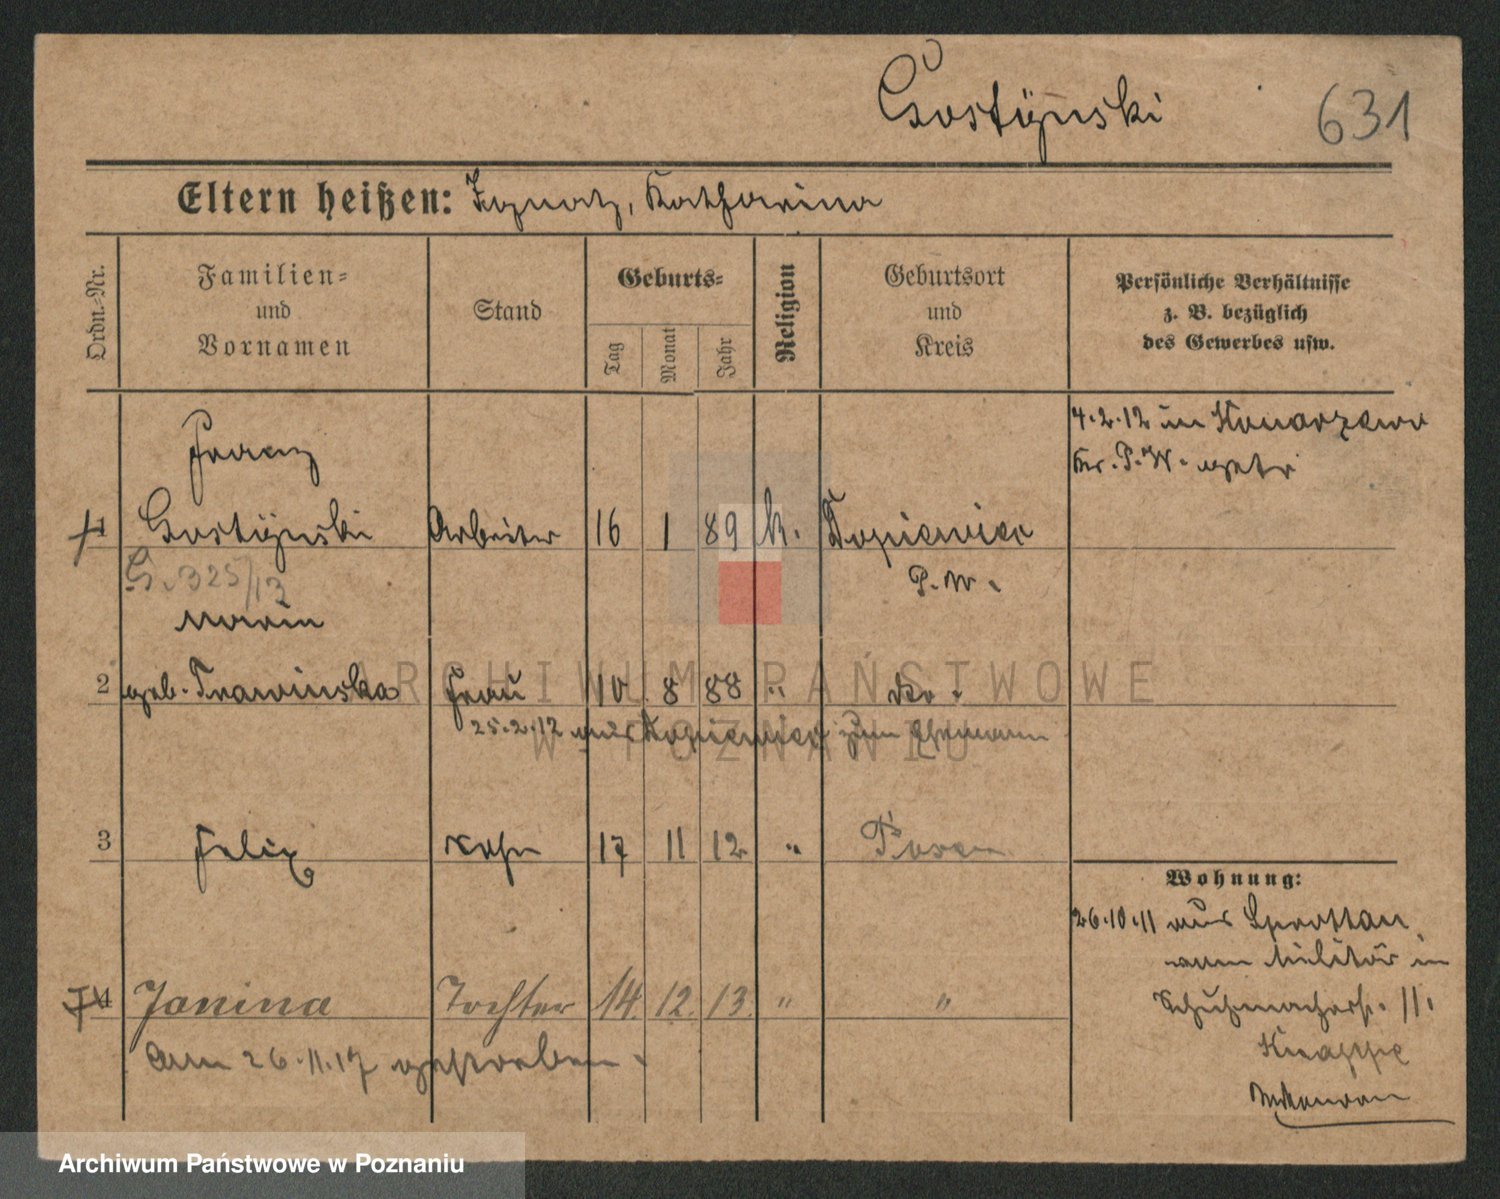 Gostÿnski
631
Eltern heißen: Ignatz, Katharina
Ordn.-Nr.
Familien-
und
Vornamen
Stand
Geburts-
Tag
Monat
Jahr
Religion
Geburtsort
und
Kreis
Persönliche Verhältnisse
z. B. bezüglich
des Gewerbes usw.
4.2.12 in Konarzewo
Kr. P.W. getr
Franz
1 Gostÿnski Arbeiter 16 1 89 k. Dopiewiec
P.W.
G. 325/13
Marie
2 geb. Trawinska Frau 10 8 88 " do.
25.2.12 aus Dopiewiec zum Ehemann
3 Felix Sohn 17 11 12 " Posen
Wohnung:
26.10.11 aus Sprottau
vom Militär in
Schuhmacherstr. 11.
4 Janina Tochter 14. 12. 13. " "
am 26.11.17 gestorben.
ARCHIWUM PAŃSTWOWE
W POZNANIU
Archiwum Państwowe w Poznaniu